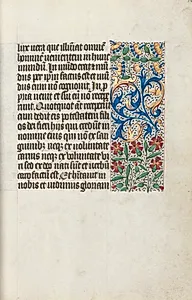 lux vera que illuiat omnē
hominē venientem in hunc
mundū. In mūdo erat et mū
dus per ipm factus est et mū
dus eum non cognovit. In pro
pria venit et sui eū nō recep
erunt. Quotquot aūt receperūt
eum dedit eis potestatem fili
os dei fieri hijs qui credūt in
nomine eius. qui nō ex san
guinibz neqz ex voluntate
carnis neqz ex volūtate vi
ri sed ex deo nati sūt et verbū
caro factū est. Et hītavit in
nobis et vidimus gloriam